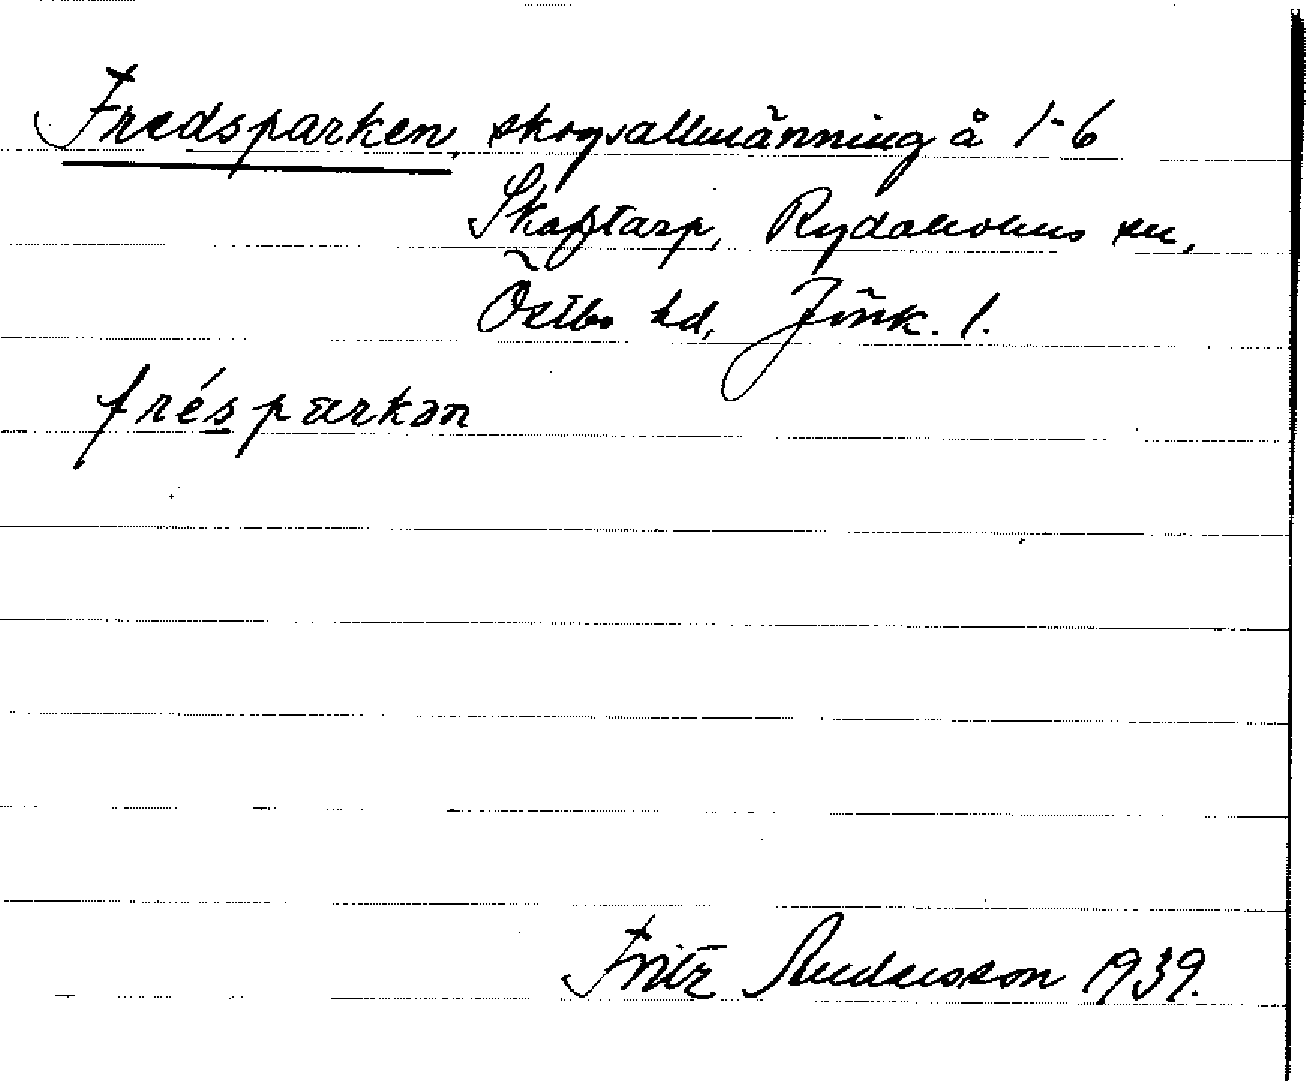 Fredsparken, skogsallmänning å 1-6
Skaftarp, Rydaholms sn,
Östbo hd, Jönk. l.
frésparkən
Fritz Andersson 1939.